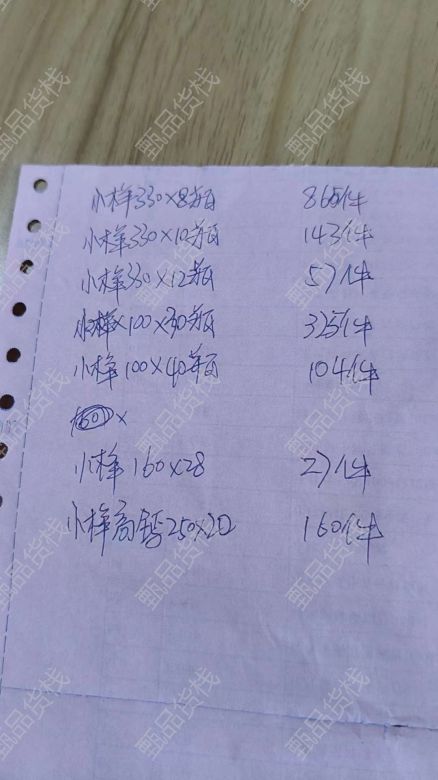 小样330×8瓶 865件
小样330×10瓶 143件
小样330×12瓶 57件
小样×100×30瓶 325件
小样100×40瓶 104件
160×
小样160×28 27件
小样高钙250×20 160件
甄品货栈